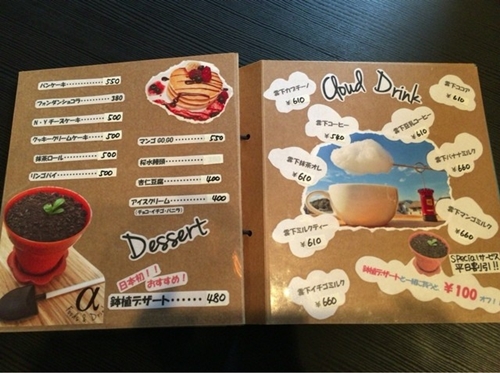 パンケーキ 550
フォンダンショコラ 380
N・Yチーズケーキ 500
クッキークリームケーキ 500
抹茶ロール 500
リンゴパイ 500
マンゴGO.GO 550
桜水饅頭
杏仁豆腐 400
アイスクリーム 400
チョコ・イチゴ・バニラ
Dessert
日本初!!
おすすめ!
鉢植デザート 480
α
Cloud Drink
雲下カプチーノ
¥610
雲下ココア
¥610
雲下コーヒー
¥580
雲下豆乳コーヒー
¥610
雲下抹茶オレ
¥610
雲下バナナミルク
¥660
雲下ミルクティー
¥610
雲下マンゴミルク
¥660
雲下イチゴミルク
¥660
Specialサービス
平日割引!!
鉢植デザートと一緒に買うと ¥100 オフ!